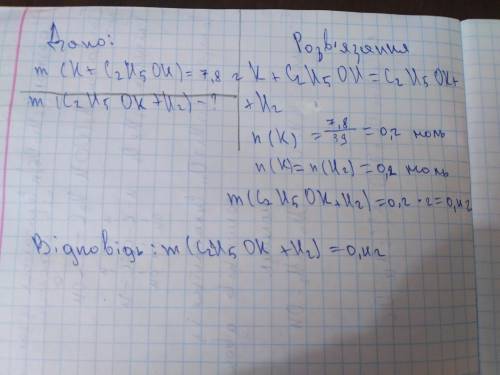 Дано:
m (K + C2H5OH) = 7,8 г
m (C2H5OK + H2) - ?
Розв'язання
K + C2H5OH = C2H5OK +
+ H2
n(K) = 7,8/39 = 0,2 моль
n(K) = n(H2) = 0,2 моль
m(C2H5OK + H2) = 0,2 · 2 = 0,4г
Відповідь: m(C2H5OK + H2) = 0,4г